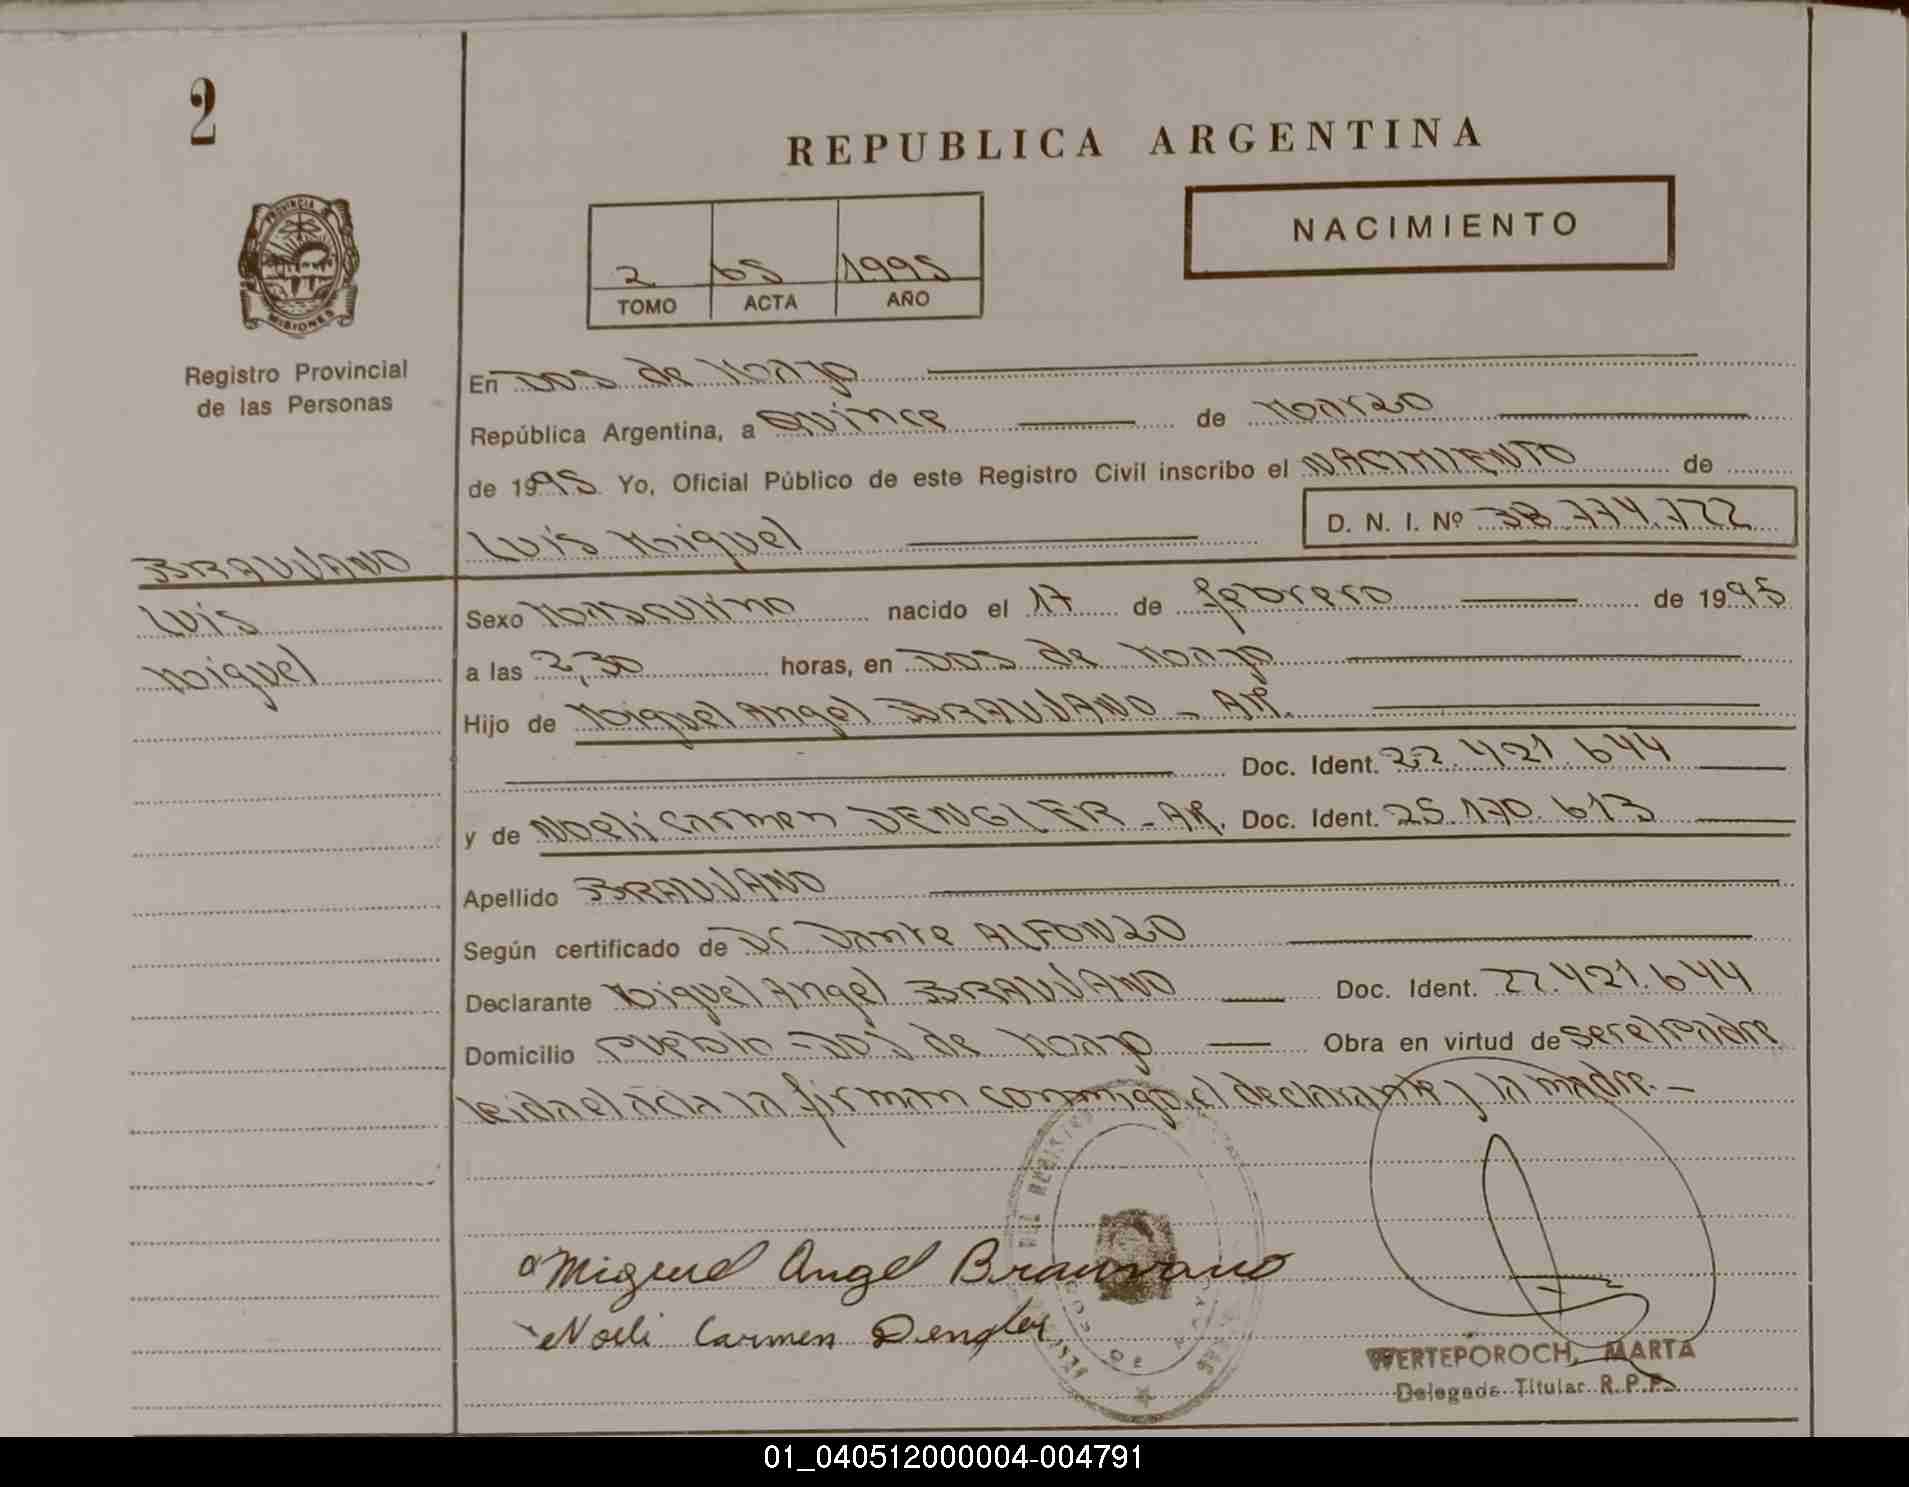 2
REPUBLICA ARGENTINA
NACIMIENTO
2 65 1995
TOMO ACTA AÑO
PROVINCIA
MISIONES
Registro Provincial
de las Personas
En Dos de Mayo
República Argentina, a Quince de Marzo
de 1995 Yo, Oficial Público de este Registro Civil inscribo el NACIMIENTO de
D. N. I. Nº 38.774.722
BRAUVANO
Luis Miguel
Luis
Miguel
Sexo Masculino nacido el 17 de febrero de 1995
a las 2,30 horas, en Dos de Mayo
Hijo de Miguel Angel BRAUVANO - AR.
Doc. Ident. 22.421.644
y de Noeli Carmen DENGLER - AR. Doc. Ident. 25.170.613
Apellido BRAUVANO
Según certificado de Dr Dante ALFONZO
Declarante Miguel Angel BRAUVANO Doc. Ident. 22.421.644
Domicilio Pueblo - Dos de Mayo Obra en virtud de ser el Padre
leida el acta la firman conmigo, el declarante y la madre. -
Miguel Angel Brauvano
Noeli Carmen Dengler
WERTEPOROCH, MARTA
Delegada Titular R.P.P.
01_040512000004-004791